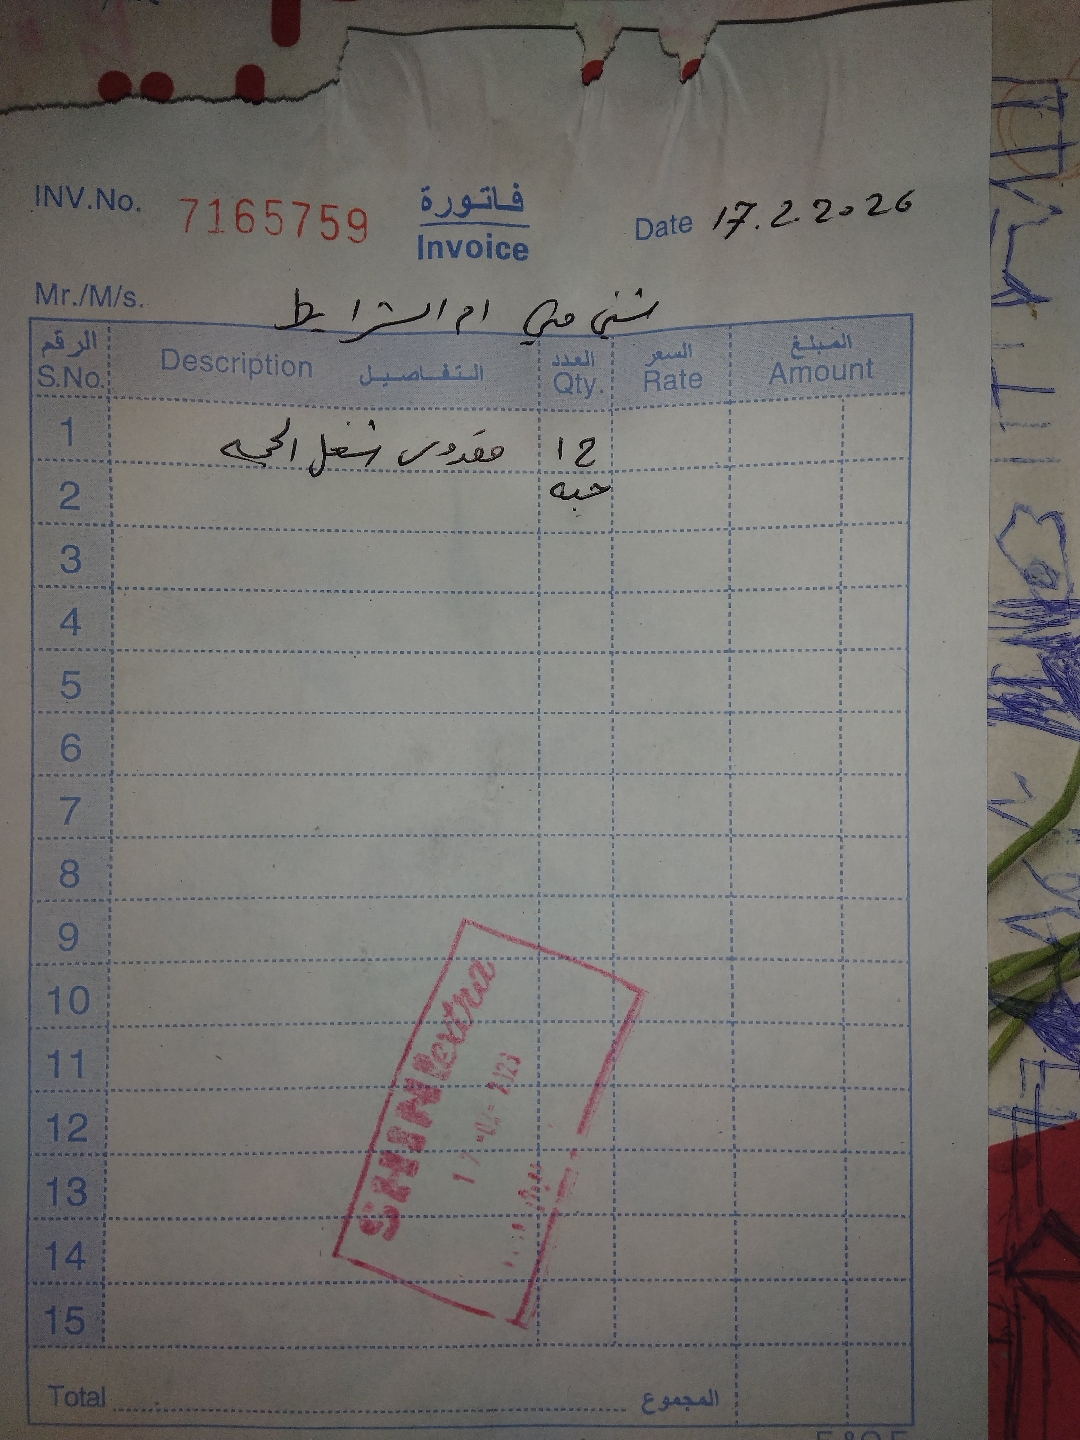 INV.No. 7165759
فاتورة
Invoice
Date 17.2.2026
Mr./M/s. ام الشرايط
الرقم S.No.
Description التفاصيل
العدد Qty.
السعر Rate
المبلغ Amount
1 مقدوس شغل 12
2 حبه
3
4
5
6
7
8
9
10
11
12
13
14
15
SHINextra
Total المجموع